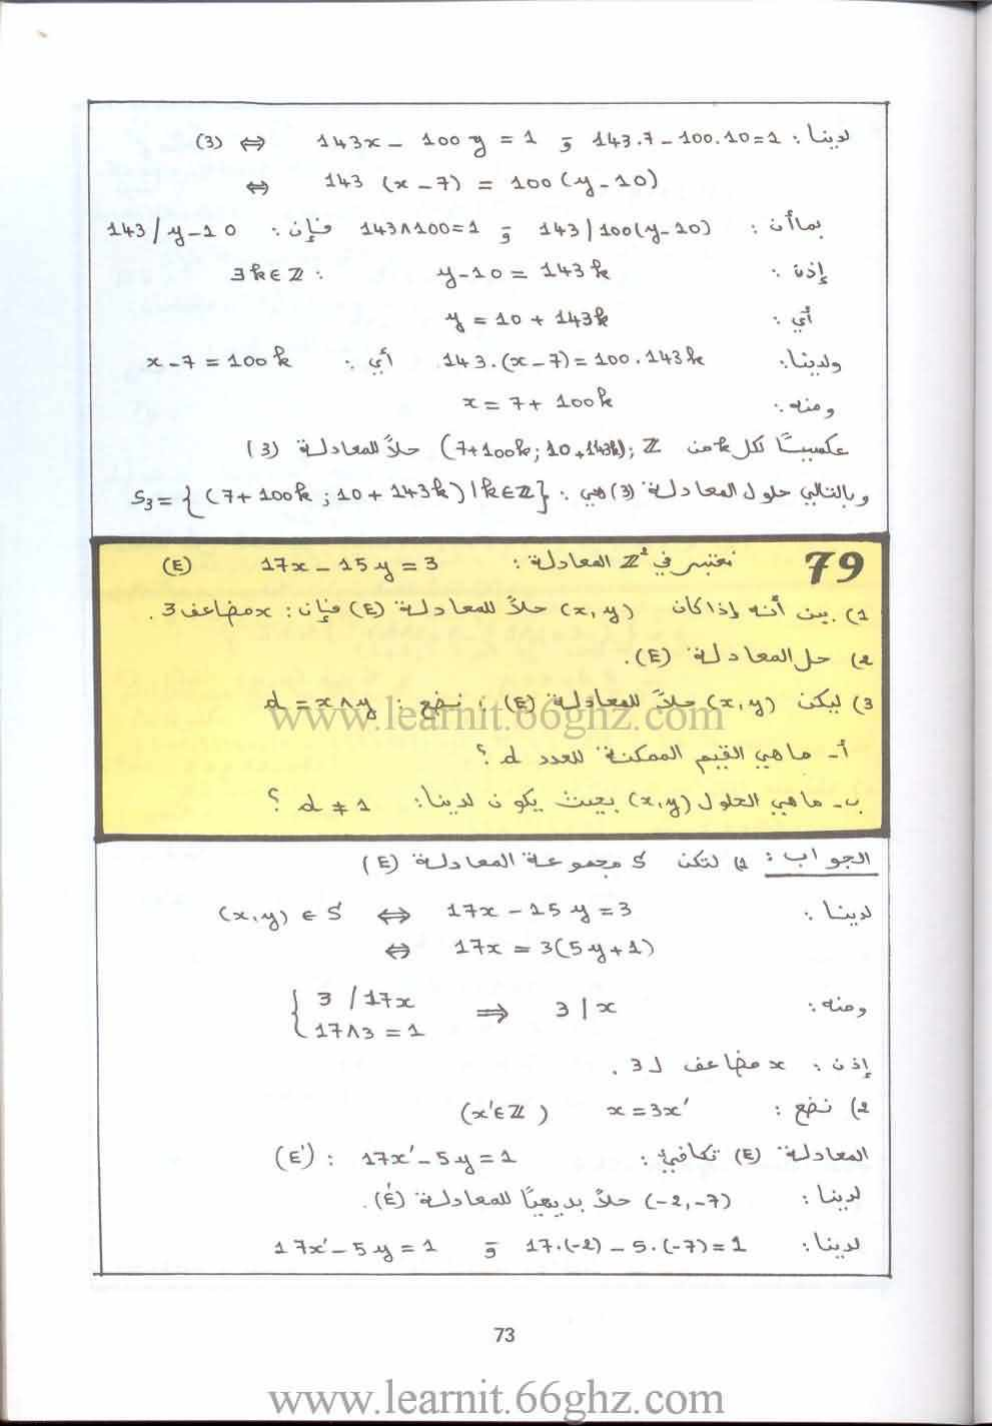 لدينا : 143.7 - 100.10 = 1 و 143x - 100y = 1 ⇔ (3)
⇔ 143 (x - 7) = 100 (y - 10)
بما أن : 143 | 100(y - 10) و 143∧100 = 1 فإن : 143 / y - 10
إذن : y - 10 = 143k : ∃k∈ℤ
أي : y = 10 + 143k
ولدينا: 143.(x - 7) = 100.143k أي : x - 7 = 100k
ومنه : x = 7 + 100k
عكسيا لكل k من ℤ ; (7+100k ; 10+143k) حلاً للمعادلة (3)
وبالتالي حلول المعادلة (3) هي : S₃ = { (7 + 100k ; 10 + 143k) | k∈ℤ }
79 نعتبر في ℤ² المعادلة : 17x - 15y = 3 (E)
1) بين أنه إذا كان (x, y) حلاً للمعادلة (E) فإن : x مضاعف 3.
2) حل المعادلة (E).
3) ليكن (x, y) حلاً للمعادلة (E) ; نضع : d = x∧y
www.learnit.66ghz.com
أ- ما هي القيم الممكنة للعدد d ؟
ب- ما هي الحلول (x, y) بحيث يكون لدينا: d ≠ 1 ؟
الجواب : 1) لتكن S مجموعة المعادلة (E)
لدينا : 17x - 15y = 3 ⇔ (x, y) ∈ S
⇔ 17x = 3(5y + 1)
ومنه : { 3 / 17x ⇒ 3 | x
17∧3 = 1
إذن : x مضاعف ل 3 .
2) نضع : x = 3x' (x'∈ℤ)
المعادلة (E) تكافئ : 17x' - 5y = 1 : (E')
لدينا : (-2, -7) حلاً بديهيًا للمعادلة (E').
لدينا : 17.(-2) - 5.(-7) = 1 و 17x' - 5y = 1
73
www.learnit.66ghz.com